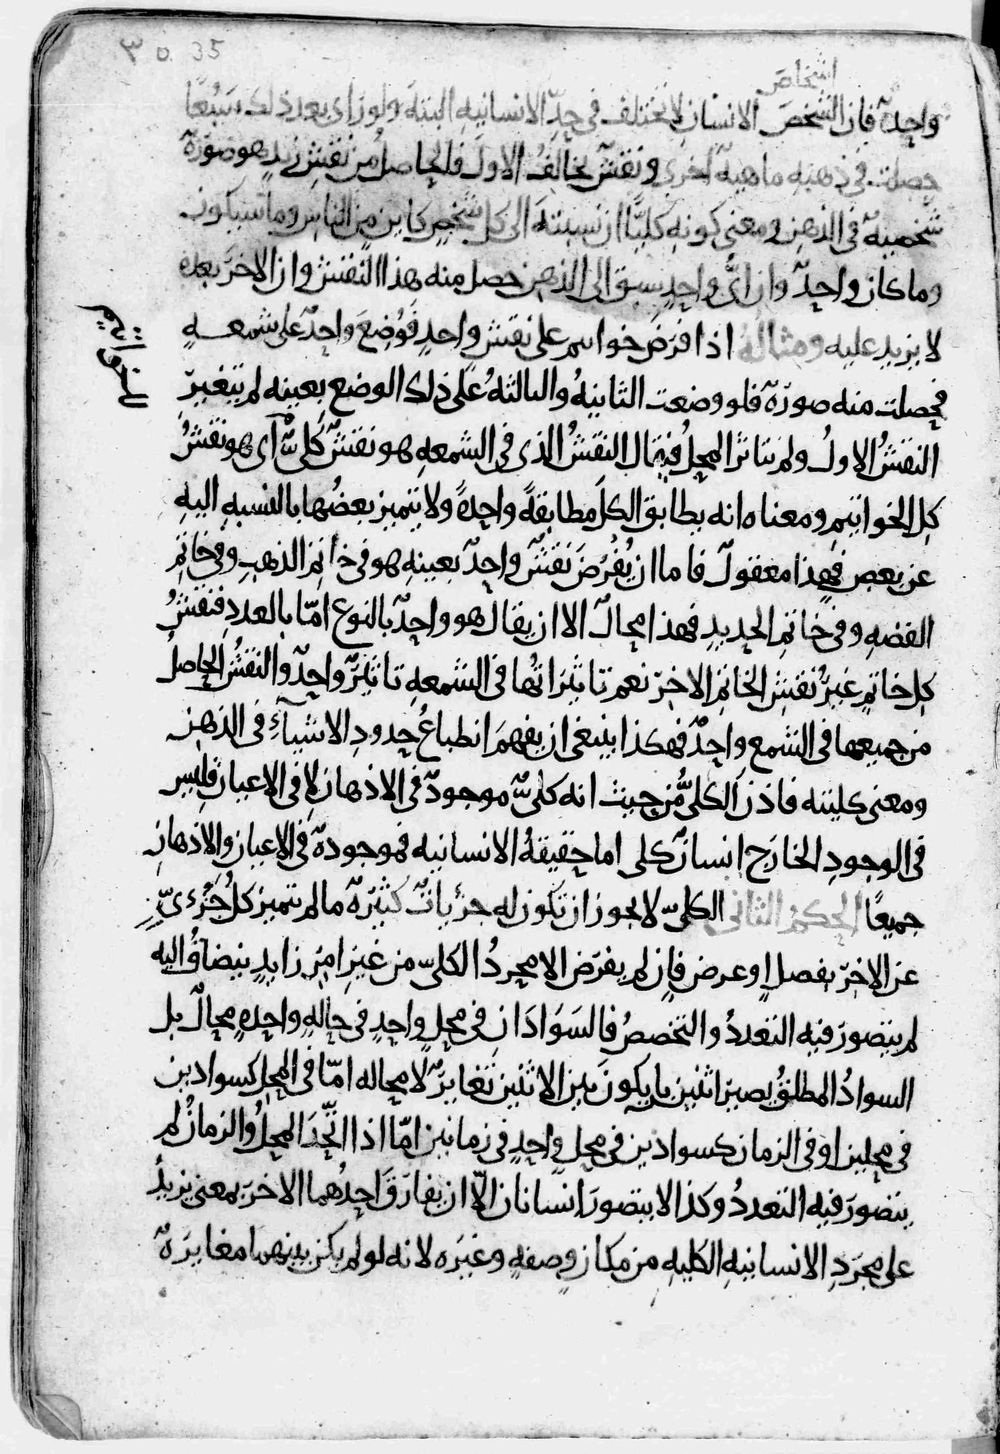 ٣٥. 35
اشخاص
واحدة فان الشخص الانسان لا تختلف فى حد الانسانيه البتة ولو راى بعد ذلك سبعًا
حصلت فى ذهنه ماهية اخرى ونقش يخالف الاول فالحاصل من نقش زيد هو صورة
شخصية فى الذهن ومعنى كونه كليًا ان نسبته الى كل شخص كاين من الناس وما سيكون
وما كان واحد وان اىّ واحد سبق الى الذهن حصل منه هذا النقش وان الاخر بعده
لا يزيد عليه ومثاله اذا فرض خواتم على نقش واحد فوضع واحد على شمعه
الخواتيم
فحصلت منه صورة فلو وضعت الثانية والثالثة على ذلك الوضع بعينه لم يتغير
النقش الاول ولم يتاثر المحل فيقال النقش الذى فى الشمعه هو نقش كلىّ اى هو نقش
كل الخواتيم ومعناه انه يطابق الكل مطابقة واحدة ولا يتميز بعضها بالنسبه اليه
عن بعض فهذا معقول فاما ان يفرض نقش واحد بعينه هو فى خاتم الذهب وفى خاتم
الفضه وفى خاتم الحديد فهذا محال الا ان يقال هو واحد بالنوع امّا بالعدد فنقش
كل خاتم غير نقش الخاتم الاخر نعم تاثيراتها فى الشمعه تاثير واحد والنقش الحاصل
من جميعها فى الشمع واحد فهكذا ينبغى ان يفهم انطباع حدود الاشياء فى الذهن
ومعنى كليته فاذن الكلىّ من حيث انه كلىّ موجود فى الاذهان لا فى الاعيان فليس
فى الوجود الخارج انسان كلى اما حقيقة الانسانيه فموجودة فى الاعيان والاذهان
جميعًا الحكم الثانى الكلىّ لا يجوز ان تكون له جزئيات كثيرة ما لم يتميز كل جزءىّ
عن الاخر بفصل او عرض فان لم يفرض الا مجرد الكلىّ من غير امر زايد ينضاف اليه
لم يتصور فيه التعدد والتخصص فالسوادان فى محل واحد فى حاله واحده محال بل
السواد المطلق يصير اثنين بان يكون بين الاثنين تغاير لا محاله امّا فى المحل كسوادين
فى محلين او فى الزمان كسوادين فى محل واحد فى زمانين امّا اذا اتّحد المحل والزمان لم
يتصور فيه التعدد وكذا لا يتصور انسانان الّا ان يفارق احدهما الاخر بمعنى يزيد
على مجرد الانسانيه الكليه من مكان وصفه وغيره لانه لو لم يكن بينهما مغايرة